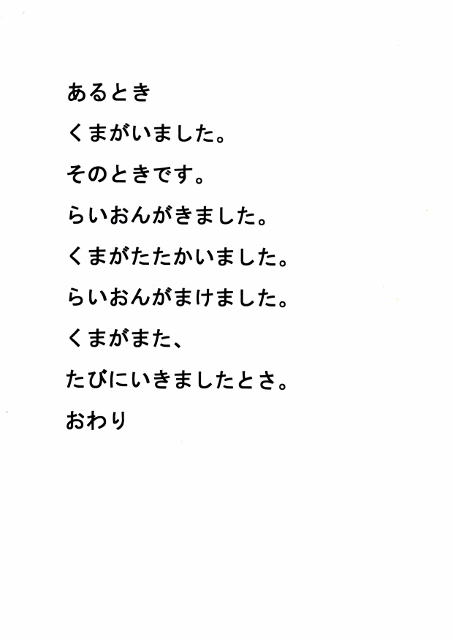 あるとき
くまがいました。
そのときです。
らいおんがきました。
くまがたたかいました。
らいおんがまけました。
くまがまた、
たびにいきましたとさ。
おわり